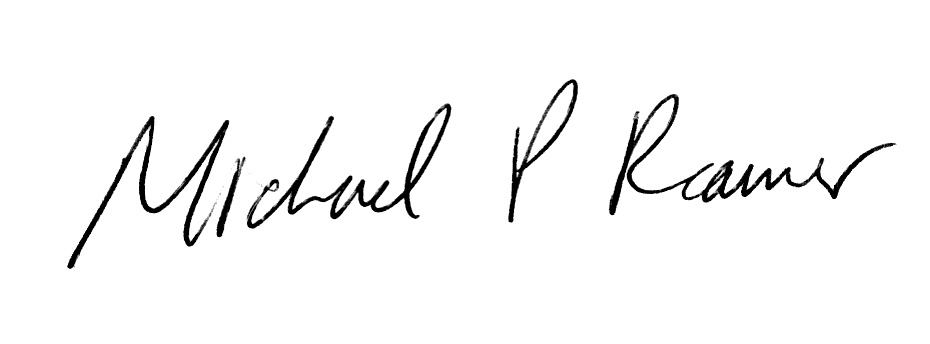 Michael P Ramer